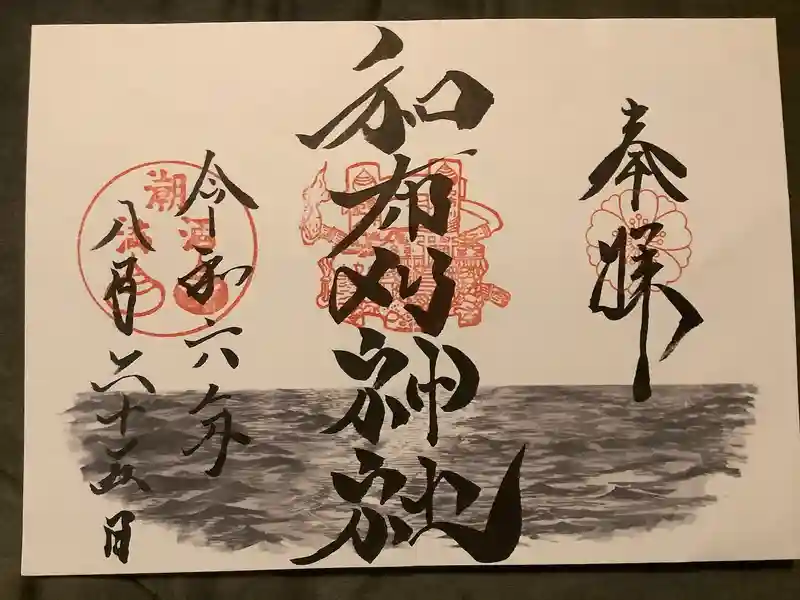 奉拝
和布刈神社
令和六年
八月二十五日
潮